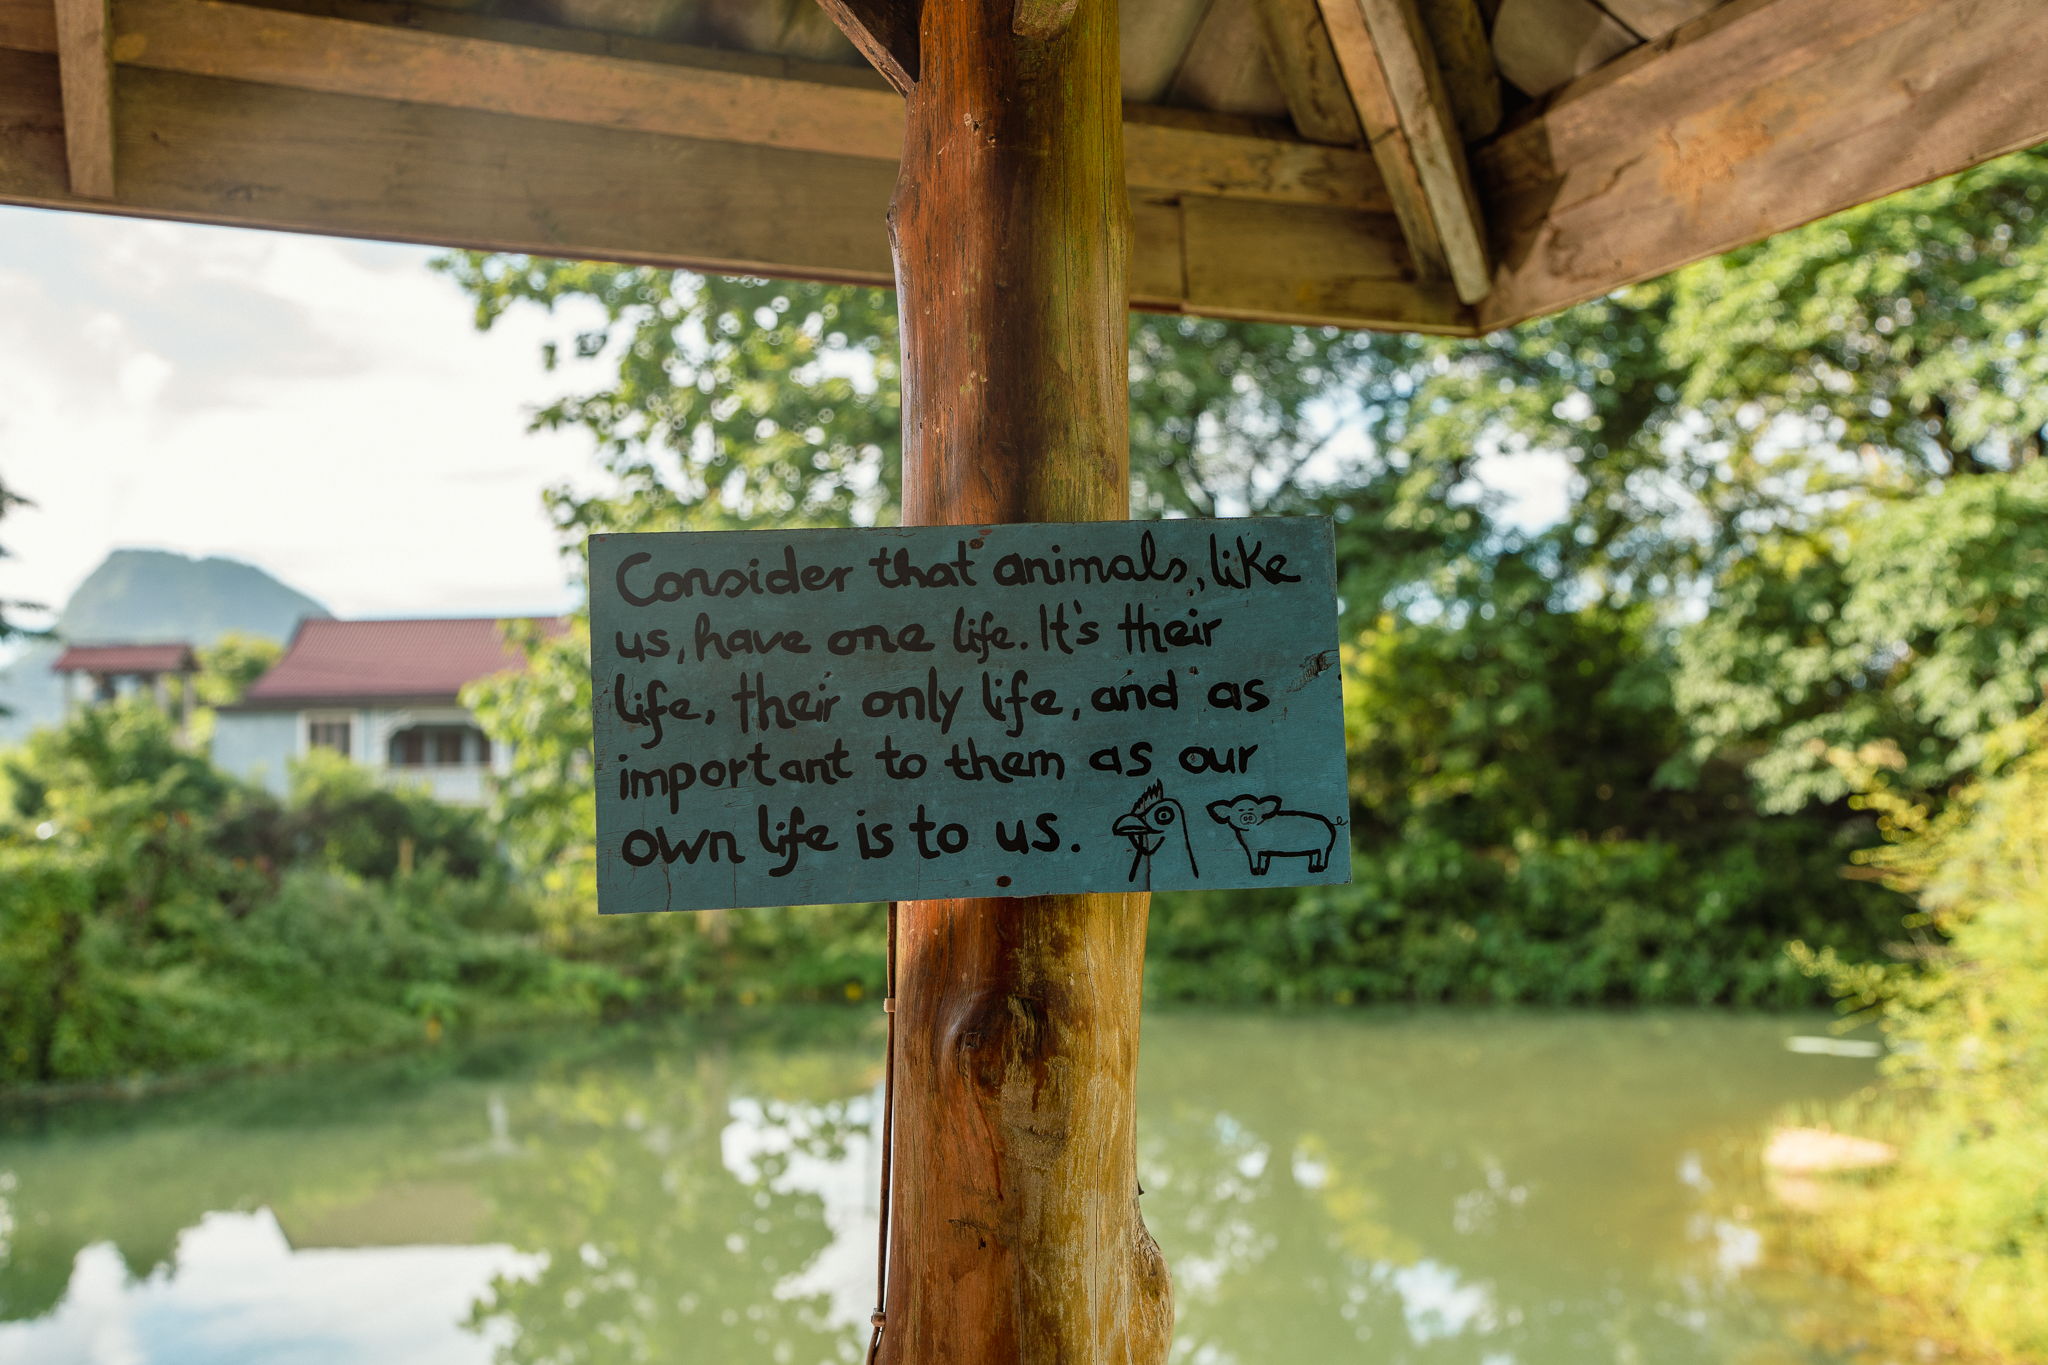 Consider that animals, like
us, have one life. It's their
life, their only life, and as
important to them as our
own life is to us.